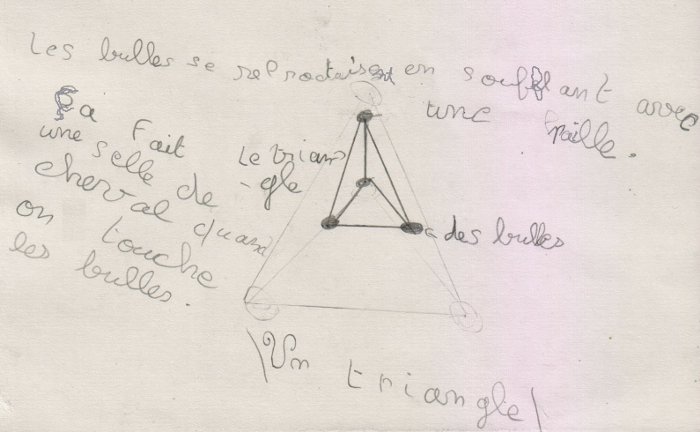 Les bulles se reproduisent en soufflant avec
une paille.
ça fait
une selle de
cheval quand
on touche
les bulles.
Le trian
-gle
des bulles
\Un triangle\